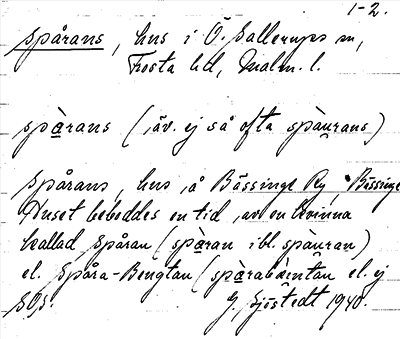 1-2.
Spårans, hus i Ö. Sallerups sn,
Frosta hd, Malm. l.
spàrans (äv. ej så ofta spàurans)
Spårans, hus å Bössinge Ry, "Bössinge
Huset beboddes en tid av en kvinna
kallad Spåran (spàran ibl. spàuran)
el. Spåra-Bengtan (spàrabäintan el. ej
sås. G. Sjöstedt 1940.